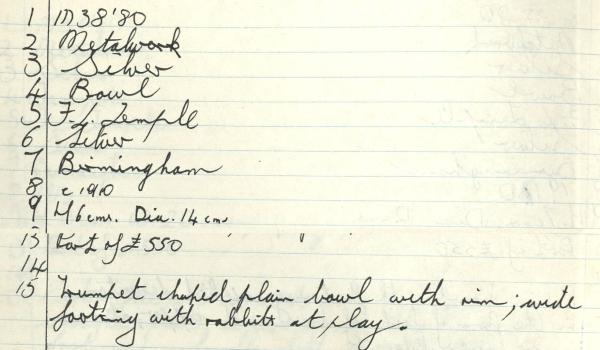 1 M38'80
2 Metalwork
3 Silver
4 Bowl
5 F.L. Temple
6 Silver
7 Birmingham
8 c 1910
9 H6cms. Dia. 14 cms
13 Part of £550
14
15 Trumpet shaped plain bowl with rim; wide
footring with rabbits at play.